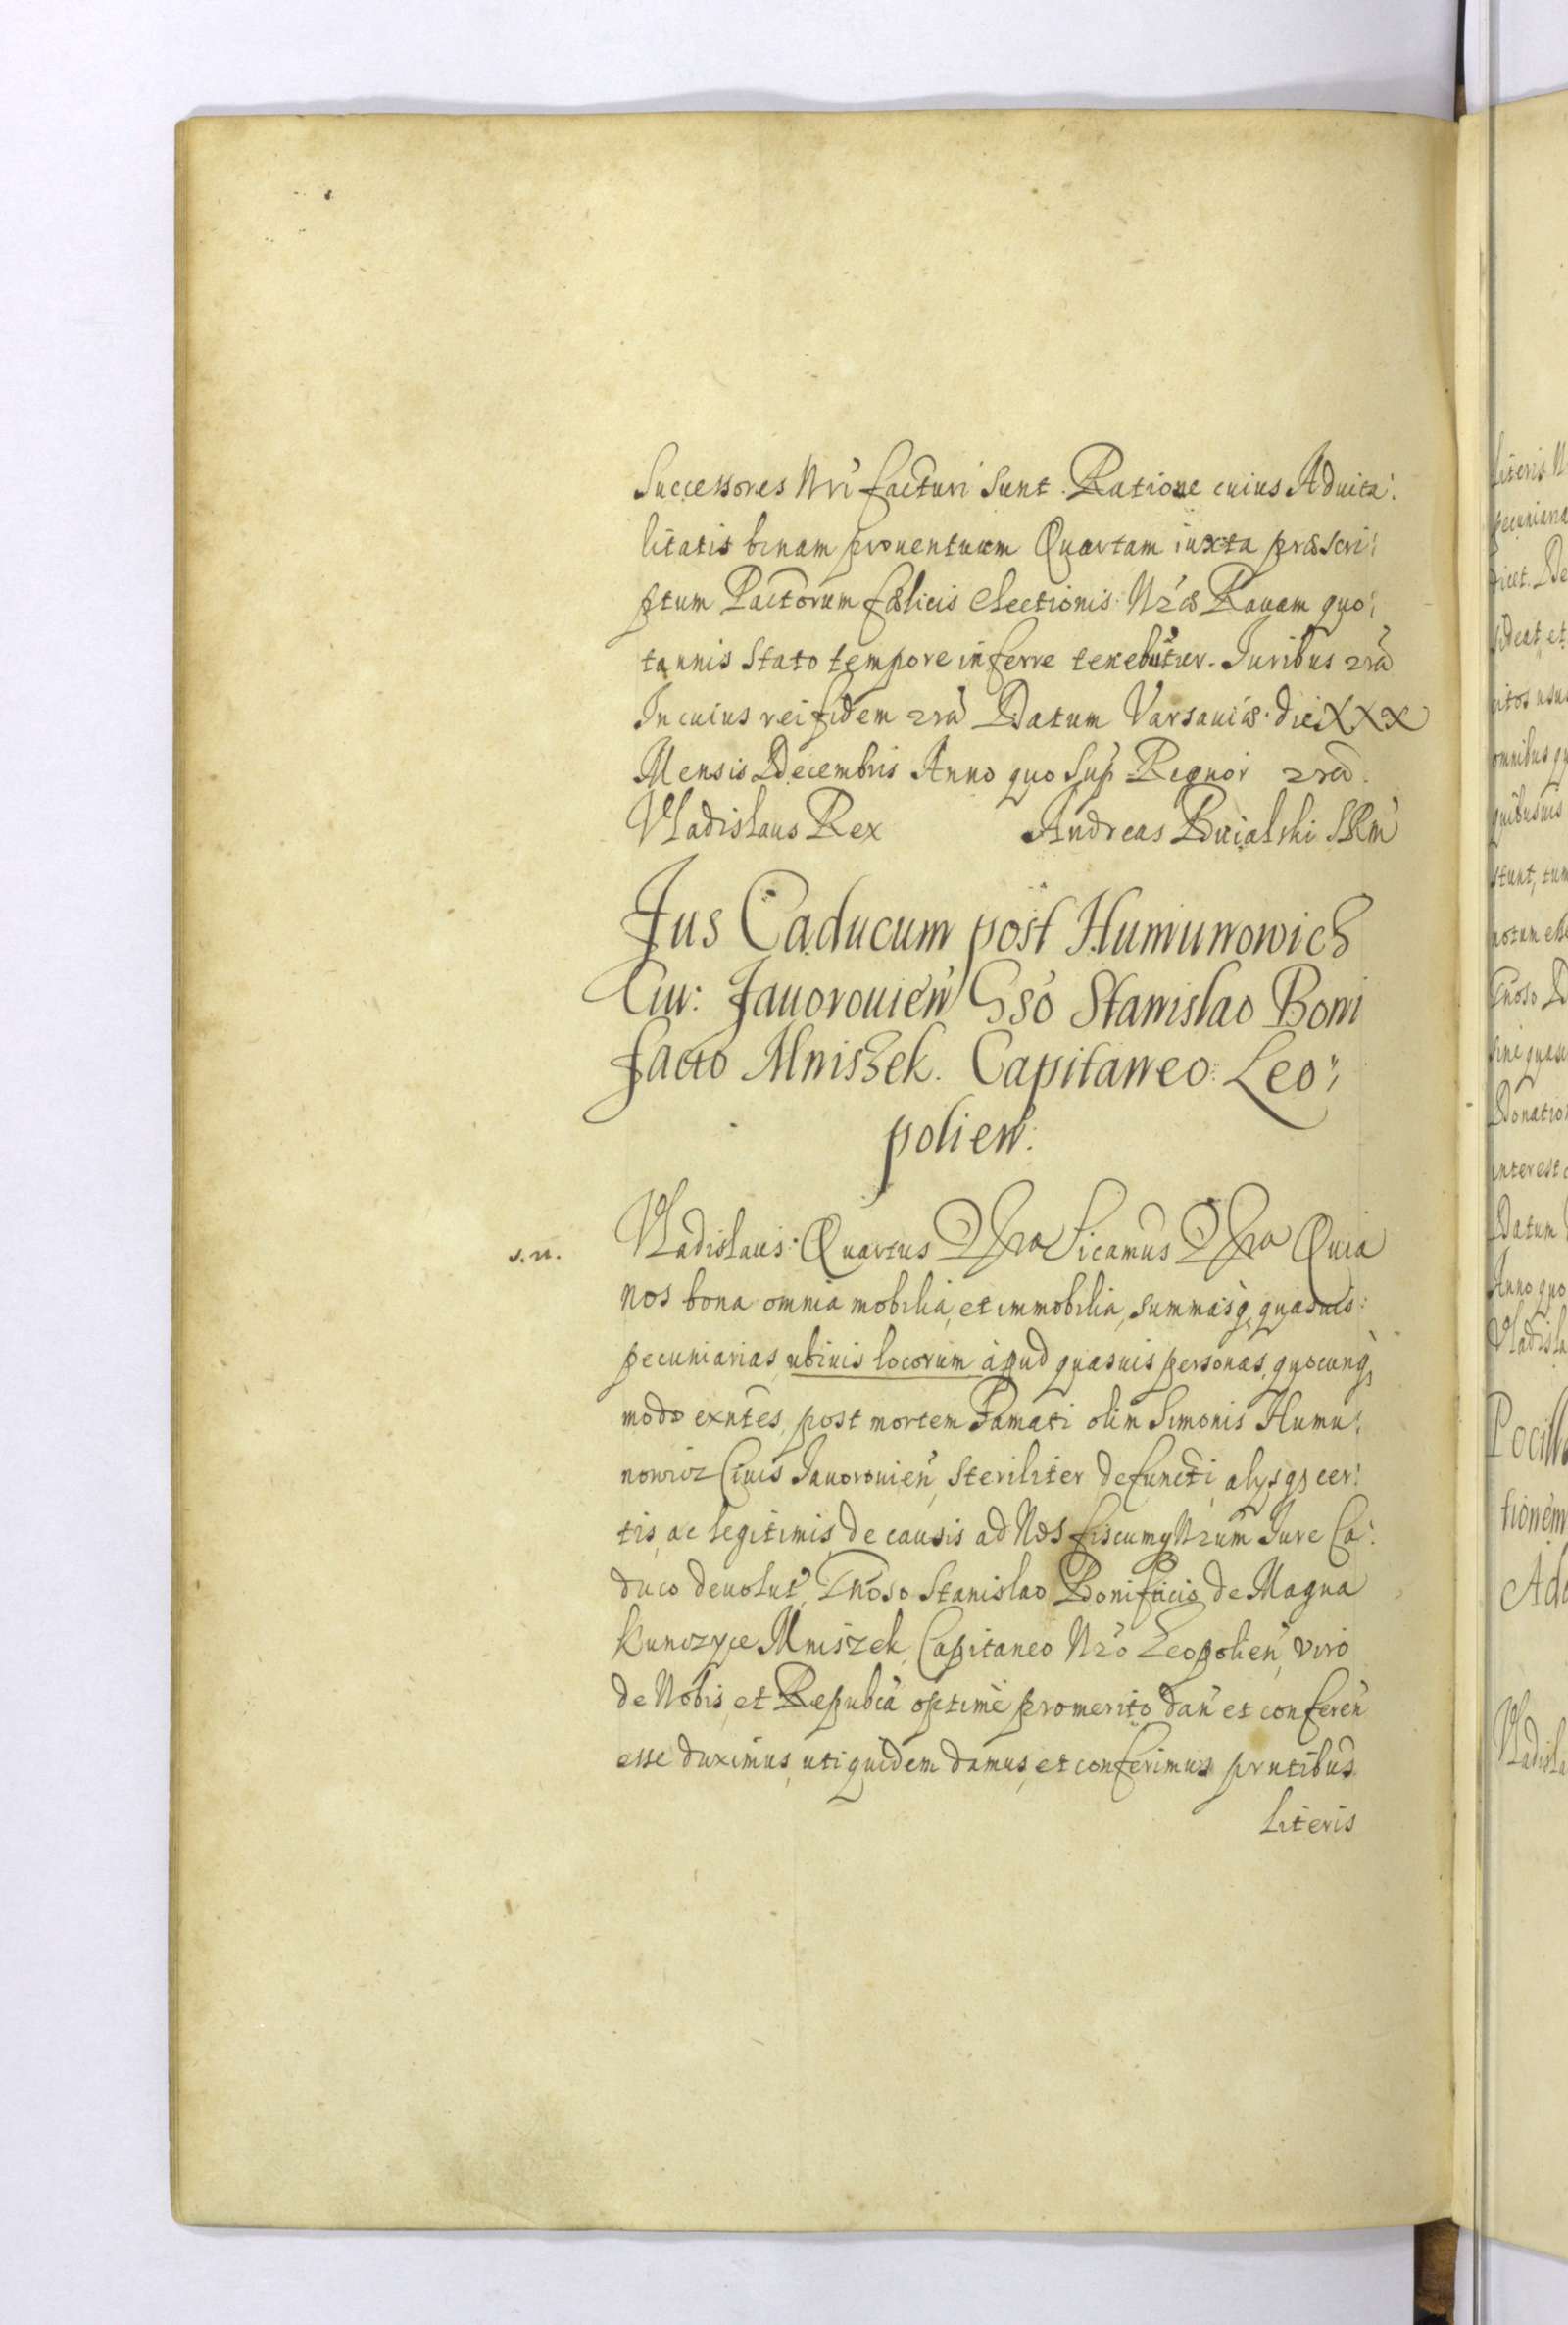 Successores Nri facturi sunt. Ratione cuius Aduita:
litatis binam prouentuum Quartam iuxta præscri:
ptum Pactorum fælicis electionis Nræ Rauam quo:
tannis stato tempore inferre tenebutur. Juribus
In cuius rei fidem Datum Varsauiæ die XXX
Mensis Decembris Anno quo sup Regnor
Vladislaus Rex Andreas Buialski SRm
Jus Caducum post Humunowicz
Ciu: Jauorouien Gso Stanislao Boni
facio Mniszek. Capitaneo Leo:
polien:
s.n. Vladislaus Quartus sicamus Quia
nos bona omnia mobilia, et immobilia, summasq quasuis:
pecuniarias ubiuis locorum apud quasuis personas, quocunq
modo exntes, post mortem Famati olim Simonis Humu:
nowicz Ciuis Jauorouien, steriliter defuncti, alysqs cer:
tis, ac legitimis de causis ad Nos fiscumq Nrum Jure Ca:
duco deuolut, Gnoso Stanislao Bonifacio de Magna
Kunczyce Mniszek, Capitaneo Nro Leopolien, viro
de Nobis, et Repubca optime promerito dan et conferen
esse duximus, uti quidem damus, et conferimus prntibus
literis